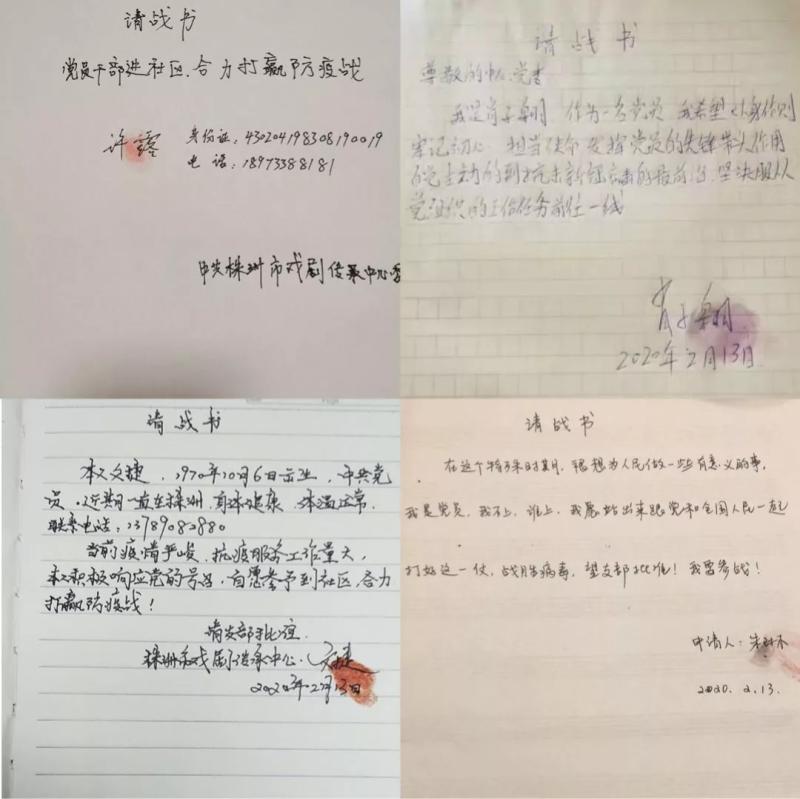 请战书
党员干部进社区,合力打赢防疫战
许
身份证:430204198308190019
电话:18973388181
中共株洲市戏剧传承中心
请战书
尊敬的中心党委
我是肖子朝 作为一名党员 我希望以身作则
牢记初心 担当使命 发挥党员的先锋带头作用
坚决服从
党组织的工作任务前往一线
肖子朝
2020年2月13日
请战书
本人文捷,1970年10月6日出生,中共党
员,近期一直在株洲,身体健康,体温正常,
联系电话:13789082880
当前疫情严峻,抗疫服务工作量大,
本人积极响应党的号召,自愿参予到社区,合力
打赢防疫战!
请支部批准.
株洲市戏剧传承中心:文捷
2020年2月13日
请战书
在这个特殊时期,很想为人民做一些有意义的事,
我是党员,我不上,谁上,我愿站出来跟党和全国人民一起
打好这一仗,战胜病毒,望支部批准!我要参战!
申请人:朱
2020.2.13.